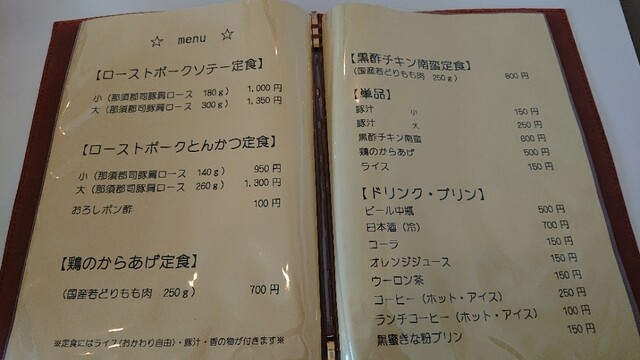 ☆ menu ☆
【ローストポークソテー定食】
小（那須郡司豚肩ロース 180g） 1,000円
大（那須郡司豚肩ロース 300g） 1,350円
【ローストポークとんかつ定食】
小（那須郡司豚肩ロース 140g） 950円
大（那須郡司豚肩ロース 260g） 1,300円
おろしポン酢 100円
【鶏のからあげ定食】
（国産若どりもも肉 250g） 700円
※定食にはライス(おかわり自由)・豚汁・香の物が付きます※
【黒酢チキン南蛮定食】
（国産若どりもも肉 250g） 800円
【単品】
豚汁 小 150円
豚汁 大 250円
黒酢チキン南蛮 600円
鶏のからあげ 500円
ライス 150円
【ドリンク・プリン】
ビール中瓶 500円
日本酒（冷） 700円
コーラ 150円
オレンジジュース 150円
ウーロン茶 150円
コーヒー（ホット・アイス） 250円
ランチコーヒー（ホット・アイス） 100円
黒蜜きな粉プリン 150円